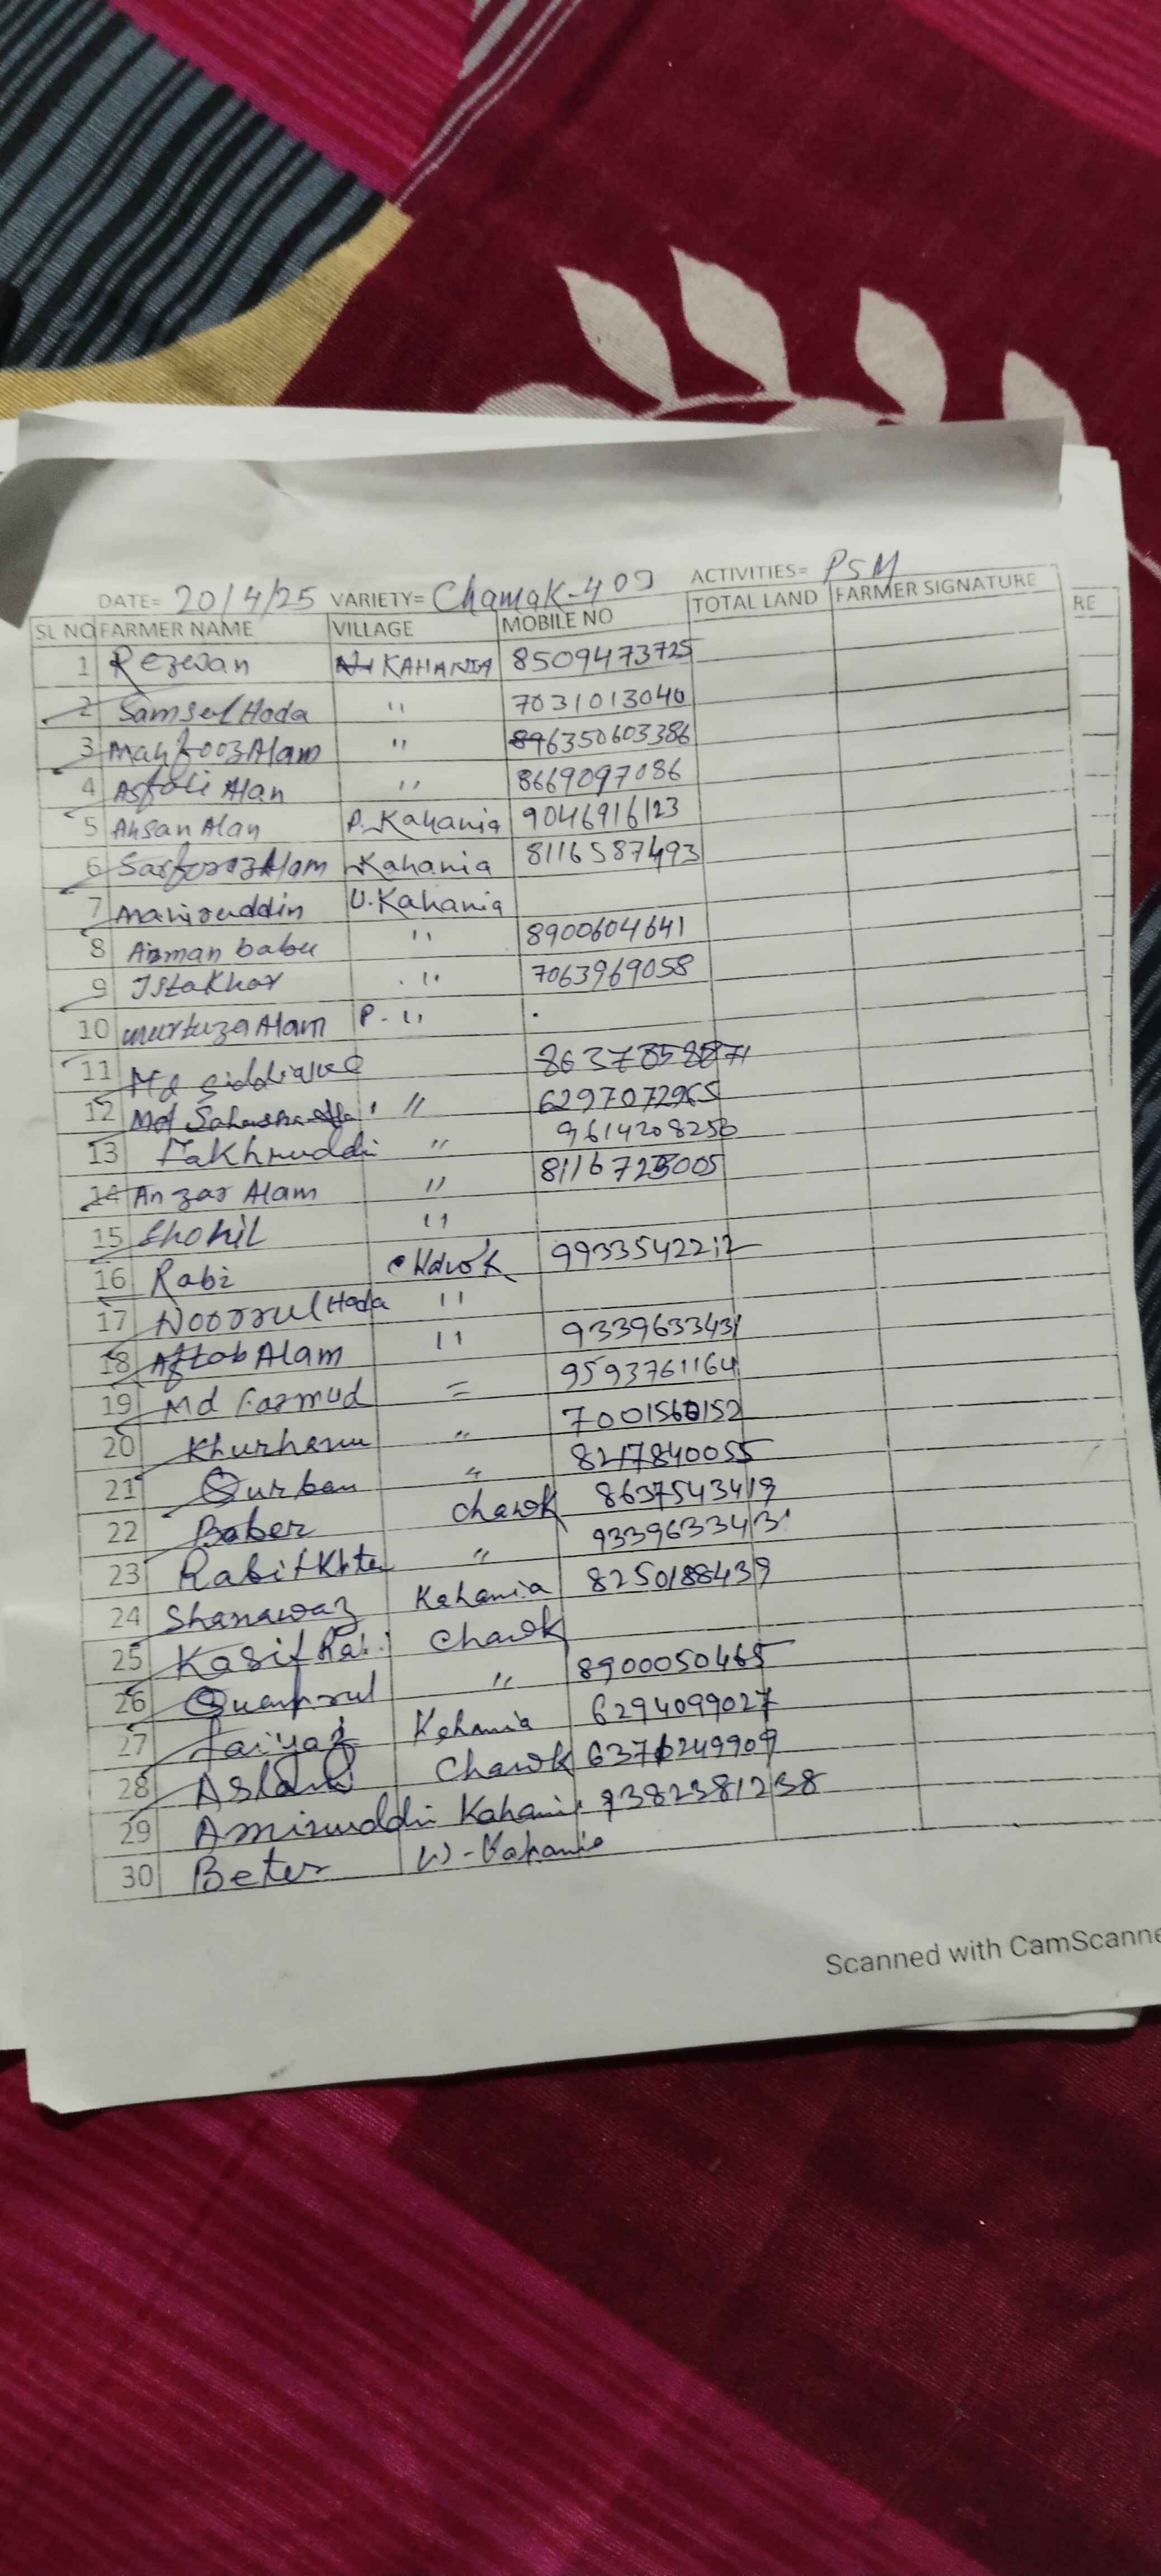 DATE= 20/4/25 VARIETY= Chamak-409 ACTIVITIES= PSM
SL NO FARMER NAME VILLAGE MOBILE NO TOTAL LAND FARMER SIGNATURE
RE
1 Rezwan KAHANIA 8509473725
2 Samsul Hoda " 7031013040
3 Mahfooz Alam " 6350603386
4 Asfali Alan " 8669097086
5 Ahsan Alan P. Kahania 9046916123
6 Sarforoz Alam Kahania 8116587493
7 Maniruddin U. Kahania
8 Arman babu " 8900604641
9 Istakhar " 7063969058
10 murtuza Alam P - "
11 Md Siddique
12 Md " 6297072965
13 Fakhruddi " 9614208250
14 Anzar Alam "
15 Shohil "
16 Rabi Chawk 9933542212
17 Noorrul Hoda "
18 Aftab Alam " 9339633431
19 Md Farmud = 9593761164
20 "
21 Qurban " 8217840055
22 Baber chawk 8637543419
23 "
24 Shanawaz Kahania 8250188439
25 Kasif Rabi Chawk
26 " 8900050465
27 Faiyaz Kahania 6294099027
28 Aslam Chawk
29 Amiruddin Kahania 9382381238
30 Beter W-Kahania
Scanned with CamScanne